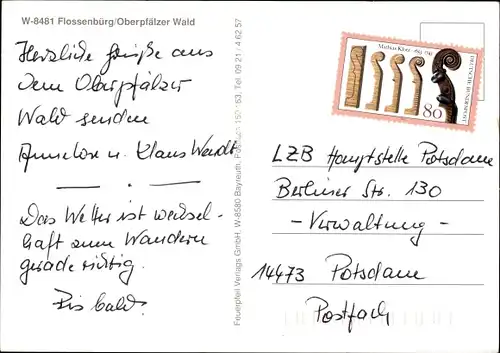 W-8481 Flossenbürg/Oberpfälzer Wald
Herzliche Grüße aus
dem Oberpfälzer
Wald senden
Annelore u. Klaus Wendt
Das Wetter ist wechsel-
haft zum Wandern
gerade richtig.
Bis bald.
Feuerpfeil Verlags GmbH, W-8580 Bayreuth, Tel. 09 21 / 4 62 57
Mathias Klotz 1653-1743
DEUTSCHE BUNDESPOST
80
LZB Hauptstelle Potsdam
Berliner Str. 130
- Verwaltung -
14473 Potsdam
Postfach